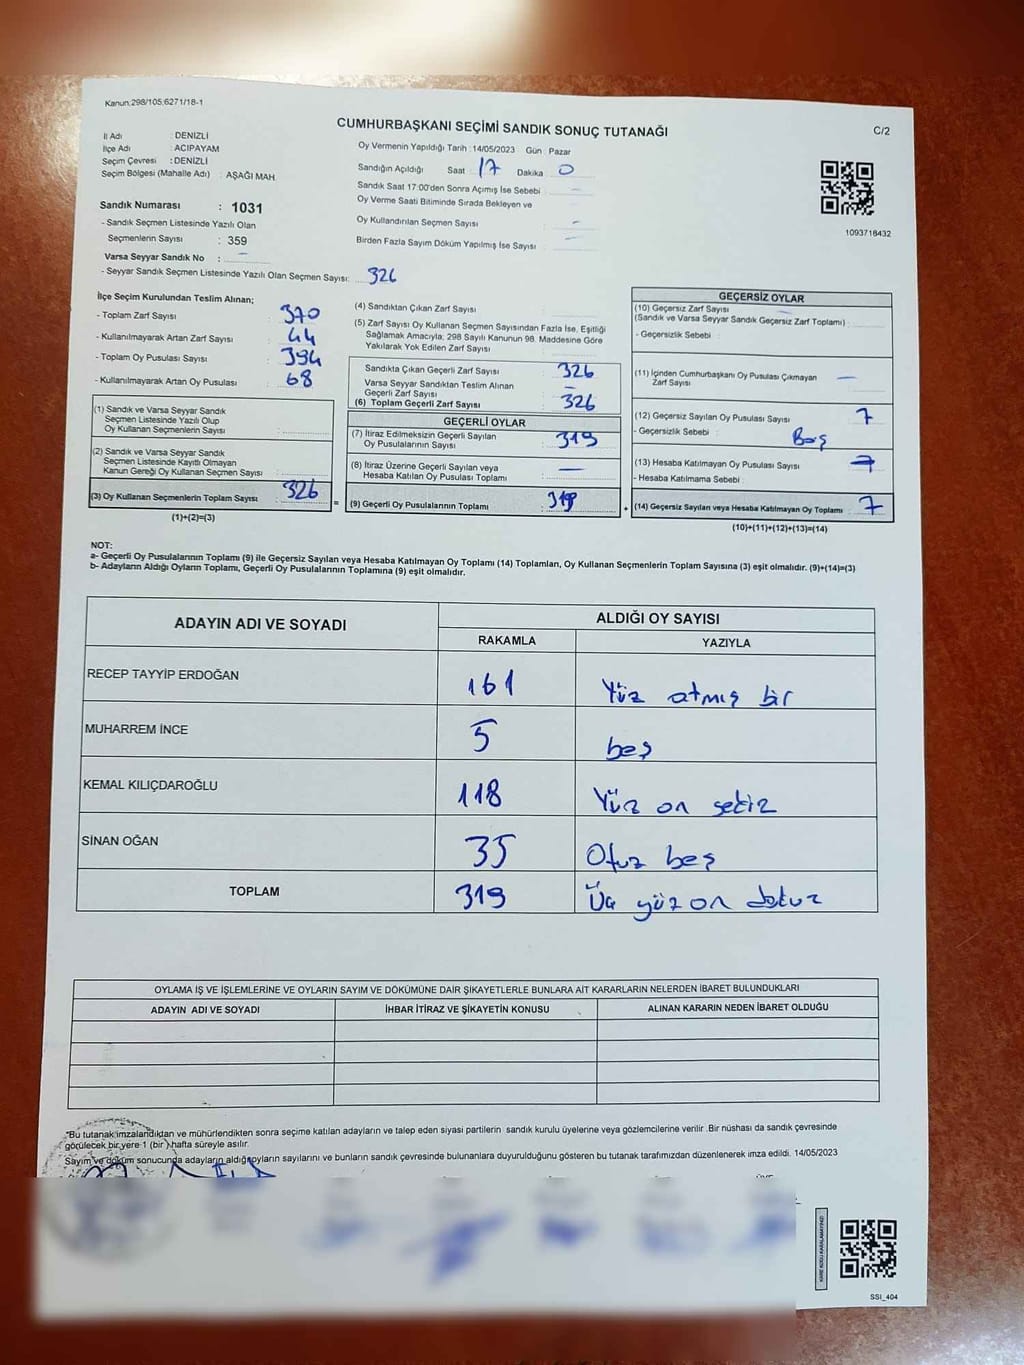 Kanun.298/105;6271/18-1
CUMHURBAŞKANI SEÇİMİ SANDIK SONUÇ TUTANAĞI
C/2
İl Adı : DENİZLİ
İlçe Adı : ACIPAYAM
Seçim Çevresi : DENİZLİ
Seçim Bölgesi (Mahalle Adı) : AŞAĞI MAH.
Oy Vermenin Yapıldığı Tarih :14/05/2023 Gün : Pazar
Sandığın Açıldığı Saat 17 Dakika : 0
Sandık Saat 17:00'den Sonra Açımış İse Sebebi : -
Oy Verme Saati Bitiminde Sırada Bekleyen ve
Oy Kullandırılan Seçmen Sayısı : -
Birden Fazla Sayım Döküm Yapılmış İse Sayısı : -
1093718432
Sandık Numarası : 1031
- Sandık Seçmen Listesinde Yazılı Olan
Seçmenlerin Sayısı : 359
Varsa Seyyar Sandık No : -
- Seyyar Sandık Seçmen Listesinde Yazılı Olan Seçmen Sayısı: 326
İlçe Seçim Kurulundan Teslim Alınan;
- Toplam Zarf Sayısı : 370
- Kullanılmayarak Artan Zarf Sayısı : 44
- Toplam Oy Pusulası Sayısı : 394
- Kullanılmayarak Artan Oy Pusulası : 68
(1) Sandık ve Varsa Seyyar Sandık
Seçmen Listesinde Yazılı Olup
Oy Kullanan Seçmenlerin Sayısı :
(2) Sandık ve Varsa Seyyar Sandık
Seçmen Listesinde Kayıtlı Olmayan
Kanun Gereği Oy Kullanan Seçmen Sayısı :
(3) Oy Kullanan Seçmenlerin Toplam Sayısı : 326
(1)+(2)=(3)
=
(4) Sandıktan Çıkan Zarf Sayısı :
(5) Zarf Sayısı Oy Kullanan Seçmen Sayısından Fazla İse, Eşitliği
Sağlamak Amacıyla; 298 Sayılı Kanunun 98. Maddesine Göre
Yakılarak Yok Edilen Zarf Sayısı :
Sandıkta Çıkan Geçerli Zarf Sayısı : 326
Varsa Seyyar Sandıktan Teslim Alınan
Geçerli Zarf Sayısı : -
(6) Toplam Geçerli Zarf Sayısı : 326
GEÇERLİ OYLAR
(7) İtiraz Edilmeksizin Geçerli Sayılan
Oy Pusulalarının Sayısı : 319
(8) İtiraz Üzerine Geçerli Sayılan veya
Hesaba Katılan Oy Pusulası Toplamı : -
(9) Geçerli Oy Pusulalarının Toplamı : 319
+
GEÇERSİZ OYLAR
(10) Geçersiz Zarf Sayısı
(Sandık ve Varsa Seyyar Sandık Geçersiz Zarf Toplamı) :
- Geçersizlik Sebebi :
(11) İçinden Cumhurbaşkanı Oy Pusulası Çıkmayan
Zarf Sayısı : -
(12) Geçersiz Sayılan Oy Pusulası Sayısı : 7
- Geçersizlik Sebebi : Boş
(13) Hesaba Katılmayan Oy Pusulası Sayısı :
- Hesaba Katılmama Sebebi :
(14) Geçersiz Sayılan veya Hesaba Katılmayan Oy Toplamı : 7
(10)+(11)+(12)+(13)=(14)
NOT:
a- Geçerli Oy Pusulalarının Toplamı (9) ile Geçersiz Sayılan veya Hesaba Katılmayan Oy Toplamı (14) Toplamları, Oy Kullanan Seçmenlerin Toplam Sayısına (3) eşit olmalıdır. (9)+(14)=(3)
b- Adayların Aldığı Oyların Toplamı, Geçerli Oy Pusulalarının Toplamına (9) eşit olmalıdır.
ADAYIN ADI VE SOYADI
ALDIĞI OY SAYISI
RAKAMLA YAZIYLA
RECEP TAYYİP ERDOĞAN 161 Yüz atmış bir
MUHARREM İNCE 5 beş
KEMAL KILIÇDAROĞLU 118 Yüz on sekiz
SİNAN OĞAN 35 Otuz beş
TOPLAM 319 Üç yüz on dokuz
OYLAMA İŞ VE İŞLEMLERİNE VE OYLARIN SAYIM VE DÖKÜMÜNE DAİR ŞİKAYETLERLE BUNLARA AİT KARARLARIN NELERDEN İBARET BULUNDUKLARI
ADAYIN ADI VE SOYADI İHBAR İTİRAZ VE ŞİKAYETİN KONUSU ALINAN KARARIN NEDEN İBARET OLDUĞU
*Bu tutanak imzalandıktan ve mühürlendikten sonra seçime katılan adayların ve talep eden siyasi partilerin sandık kurulu üyelerine veya gözlemcilerine verilir .Bir nüshası da sandık çevresinde
görülecek bir yere 1 (bir) hafta süreyle asılır.
Sayım ve döküm sonucunda adayların aldığı oyların sayılarını ve bunların sandık çevresinde bulunanlara duyurulduğunu gösteren bu tutanak tarafımızdan düzenlenerek imza edildi. 14/05/2023
SSI_404